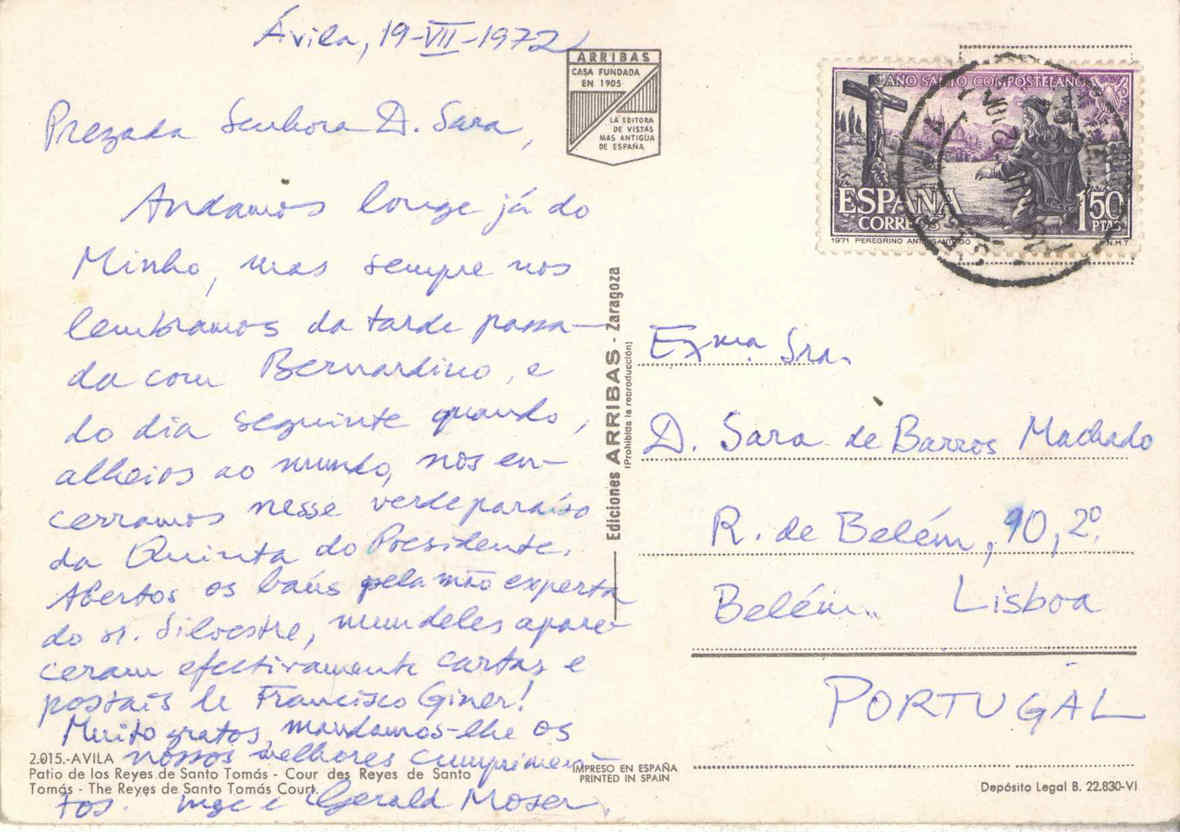 Ávila, 19-VII-1972
Prezada Senhora D. Sara,
Andamos longe já do
Minho, mas sempre nos
lembramos da tarde passa-
da com Bernardino, e
do dia seguinte quando,
alheios ao mundo, nos en-
cerramos nesse verde paraíso
da Quinta do Presidente.
Abertos os baús pela mão experta
do sr. Silvestre, num deles apare-
ceram efectivamente cartas e
postais de Francisco Giner!
Muito gratos, mandamos-lhe os
nossos melhores cumprimen-
tos. Inge e Gerald Moser
2.015.-AVILA
Patio de los Reyes de Santo Tomás - Cour des Reyes de Santo
Tomás - The Reyes de Santo Tomás Court.
ARRIBAS
CASA FUNDADA
EN 1905
LA EDITORA
DE VISTAS
MAS ANTIGUA
DE ESPAÑA
Ediciones ARRIBAS - Zaragoza
(Prohibida la reproducción)
IMPRESO EN ESPAÑA
PRINTED IN SPAIN
AÑO SANTO COMPOSTELANO
ESPAÑA
CORREOS
1'50
PTAS
1971 PEREGRINO ANTE SANTIAGO
F.N.M.T.
Exma Sra.
D. Sara de Barros Machado
R. de Belém, 90, 2º
Belém. Lisboa
PORTUGAL
Depósito Legal B. 22.830-VI